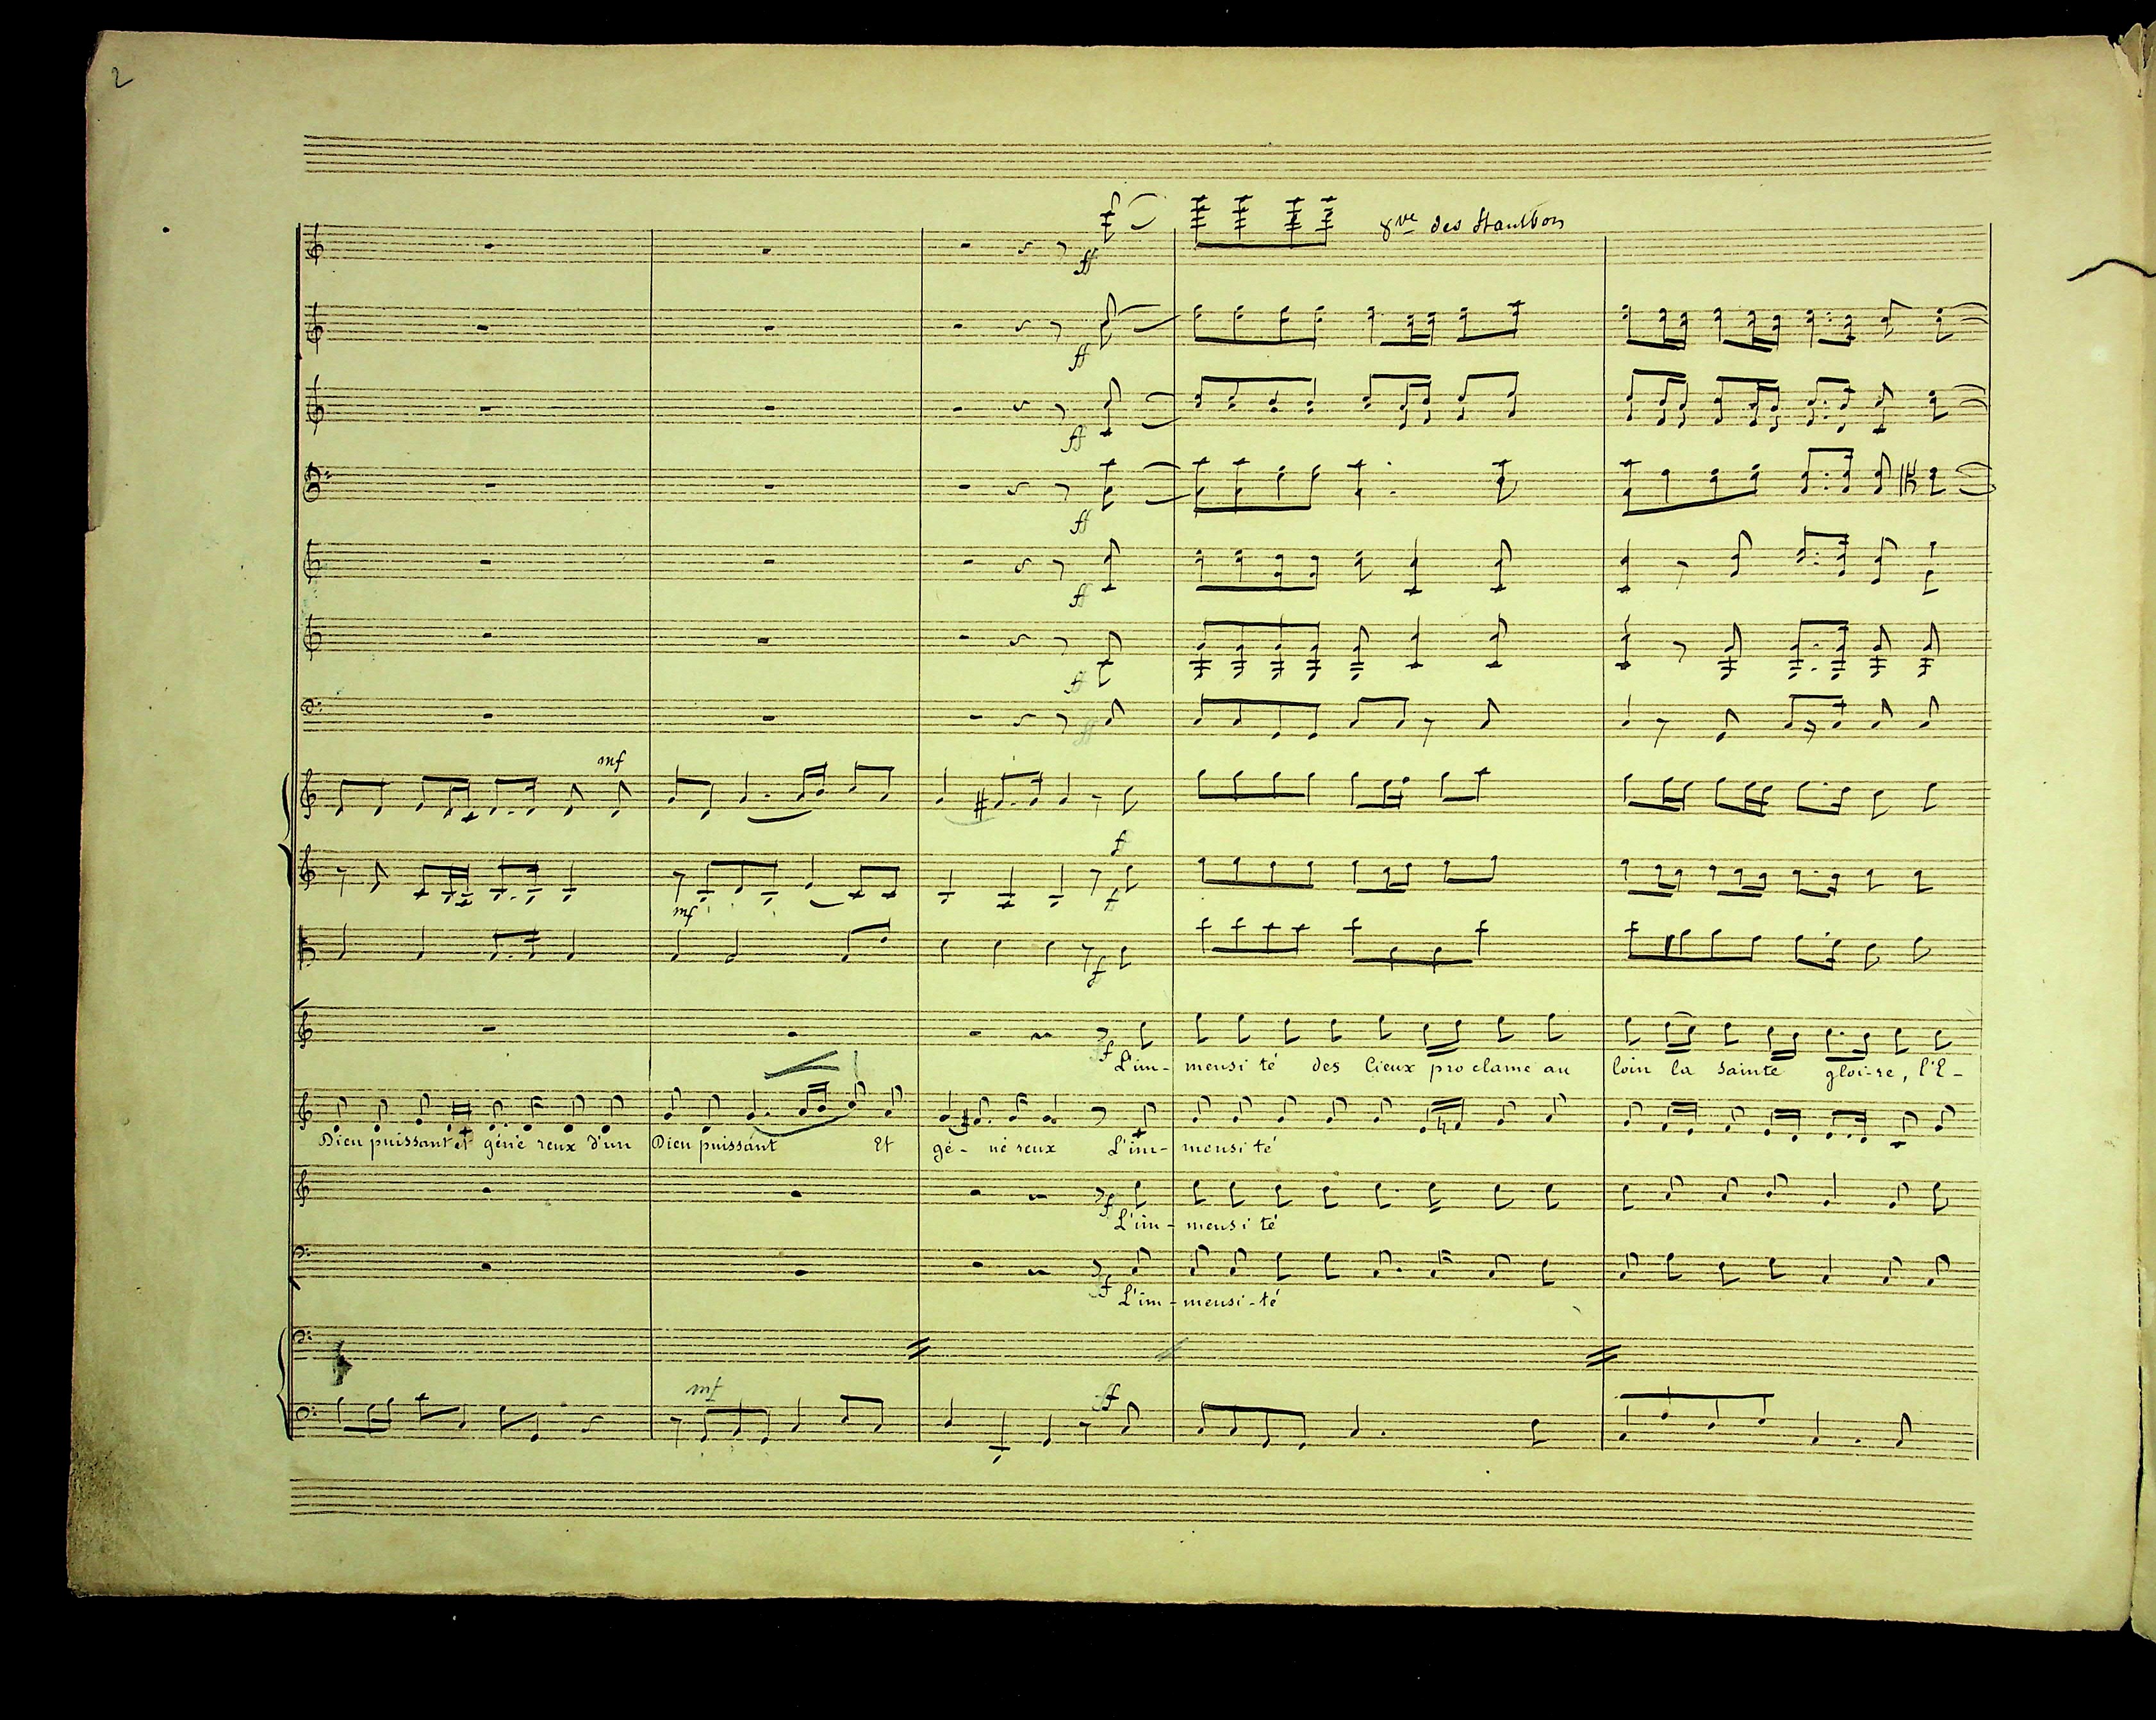 2
8ve des Hautbois
ff
ff
ff
ff
ff
ff
ff
mf
f
mf f
f
f L'im- mensi té des Cieux pro clame au loin la Sainte gloi-re, l'E-
Dieu puissant et géné reux d'un Dieu puissant Et gé- né reux L'im- mensi té
f L'im- mensi té
f L'im- mensi-té
mf ff